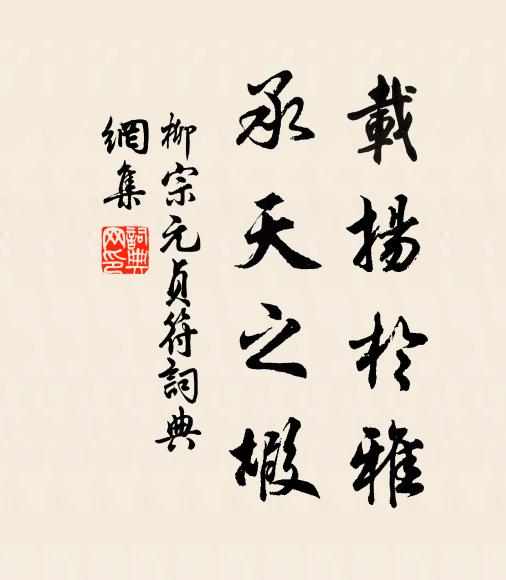 載揚於雅
承天之椵
柳宗元貞符詞典
網集
詞典
网印